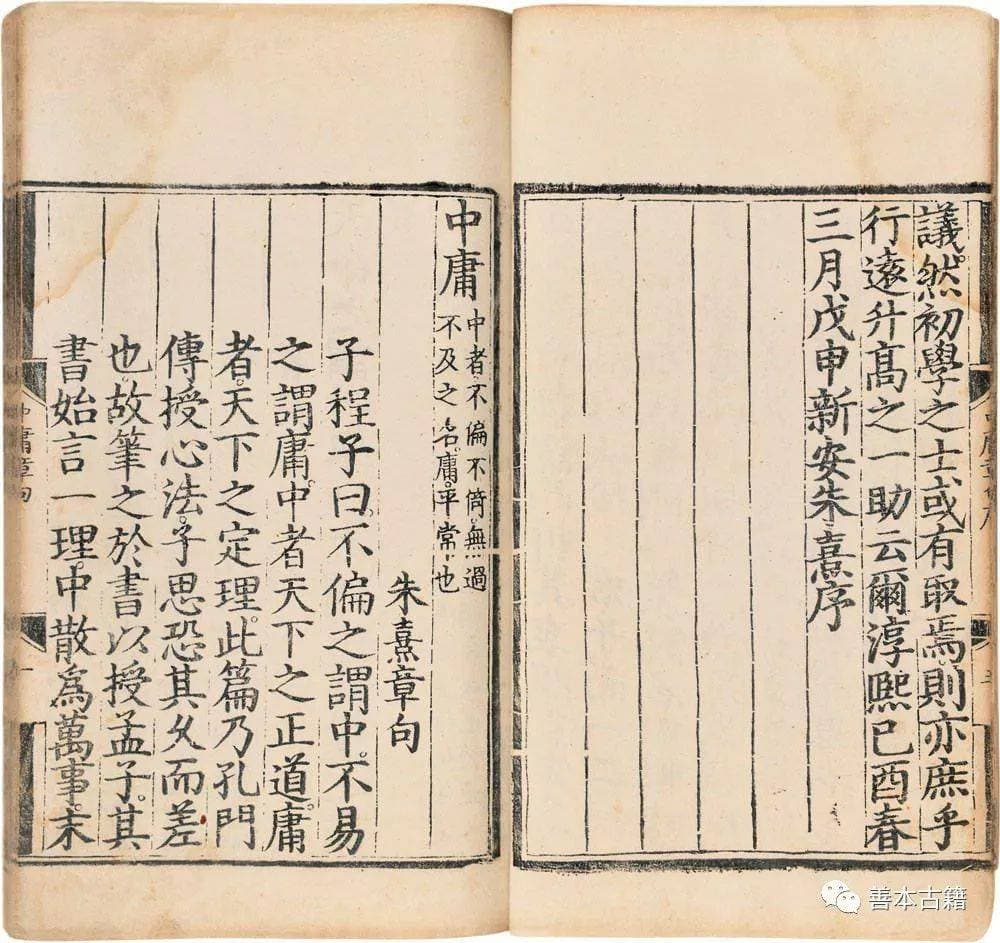 議然初學之士或有取焉則亦庶乎
行遠升髙之一助云爾淳熙己酉春
三月戊申新安朱熹序
中庸
中者不偏不倚無過
不及之名庸平常也
朱熹章句
子程子曰不偏之謂中不易
之謂庸中者天下之正道庸
者天下之定理此篇乃孔門
傳授心法子思恐其久而差
也故筆之於書以授孟子其
書始言一理中散爲萬事末
中庸章句
善本古籍